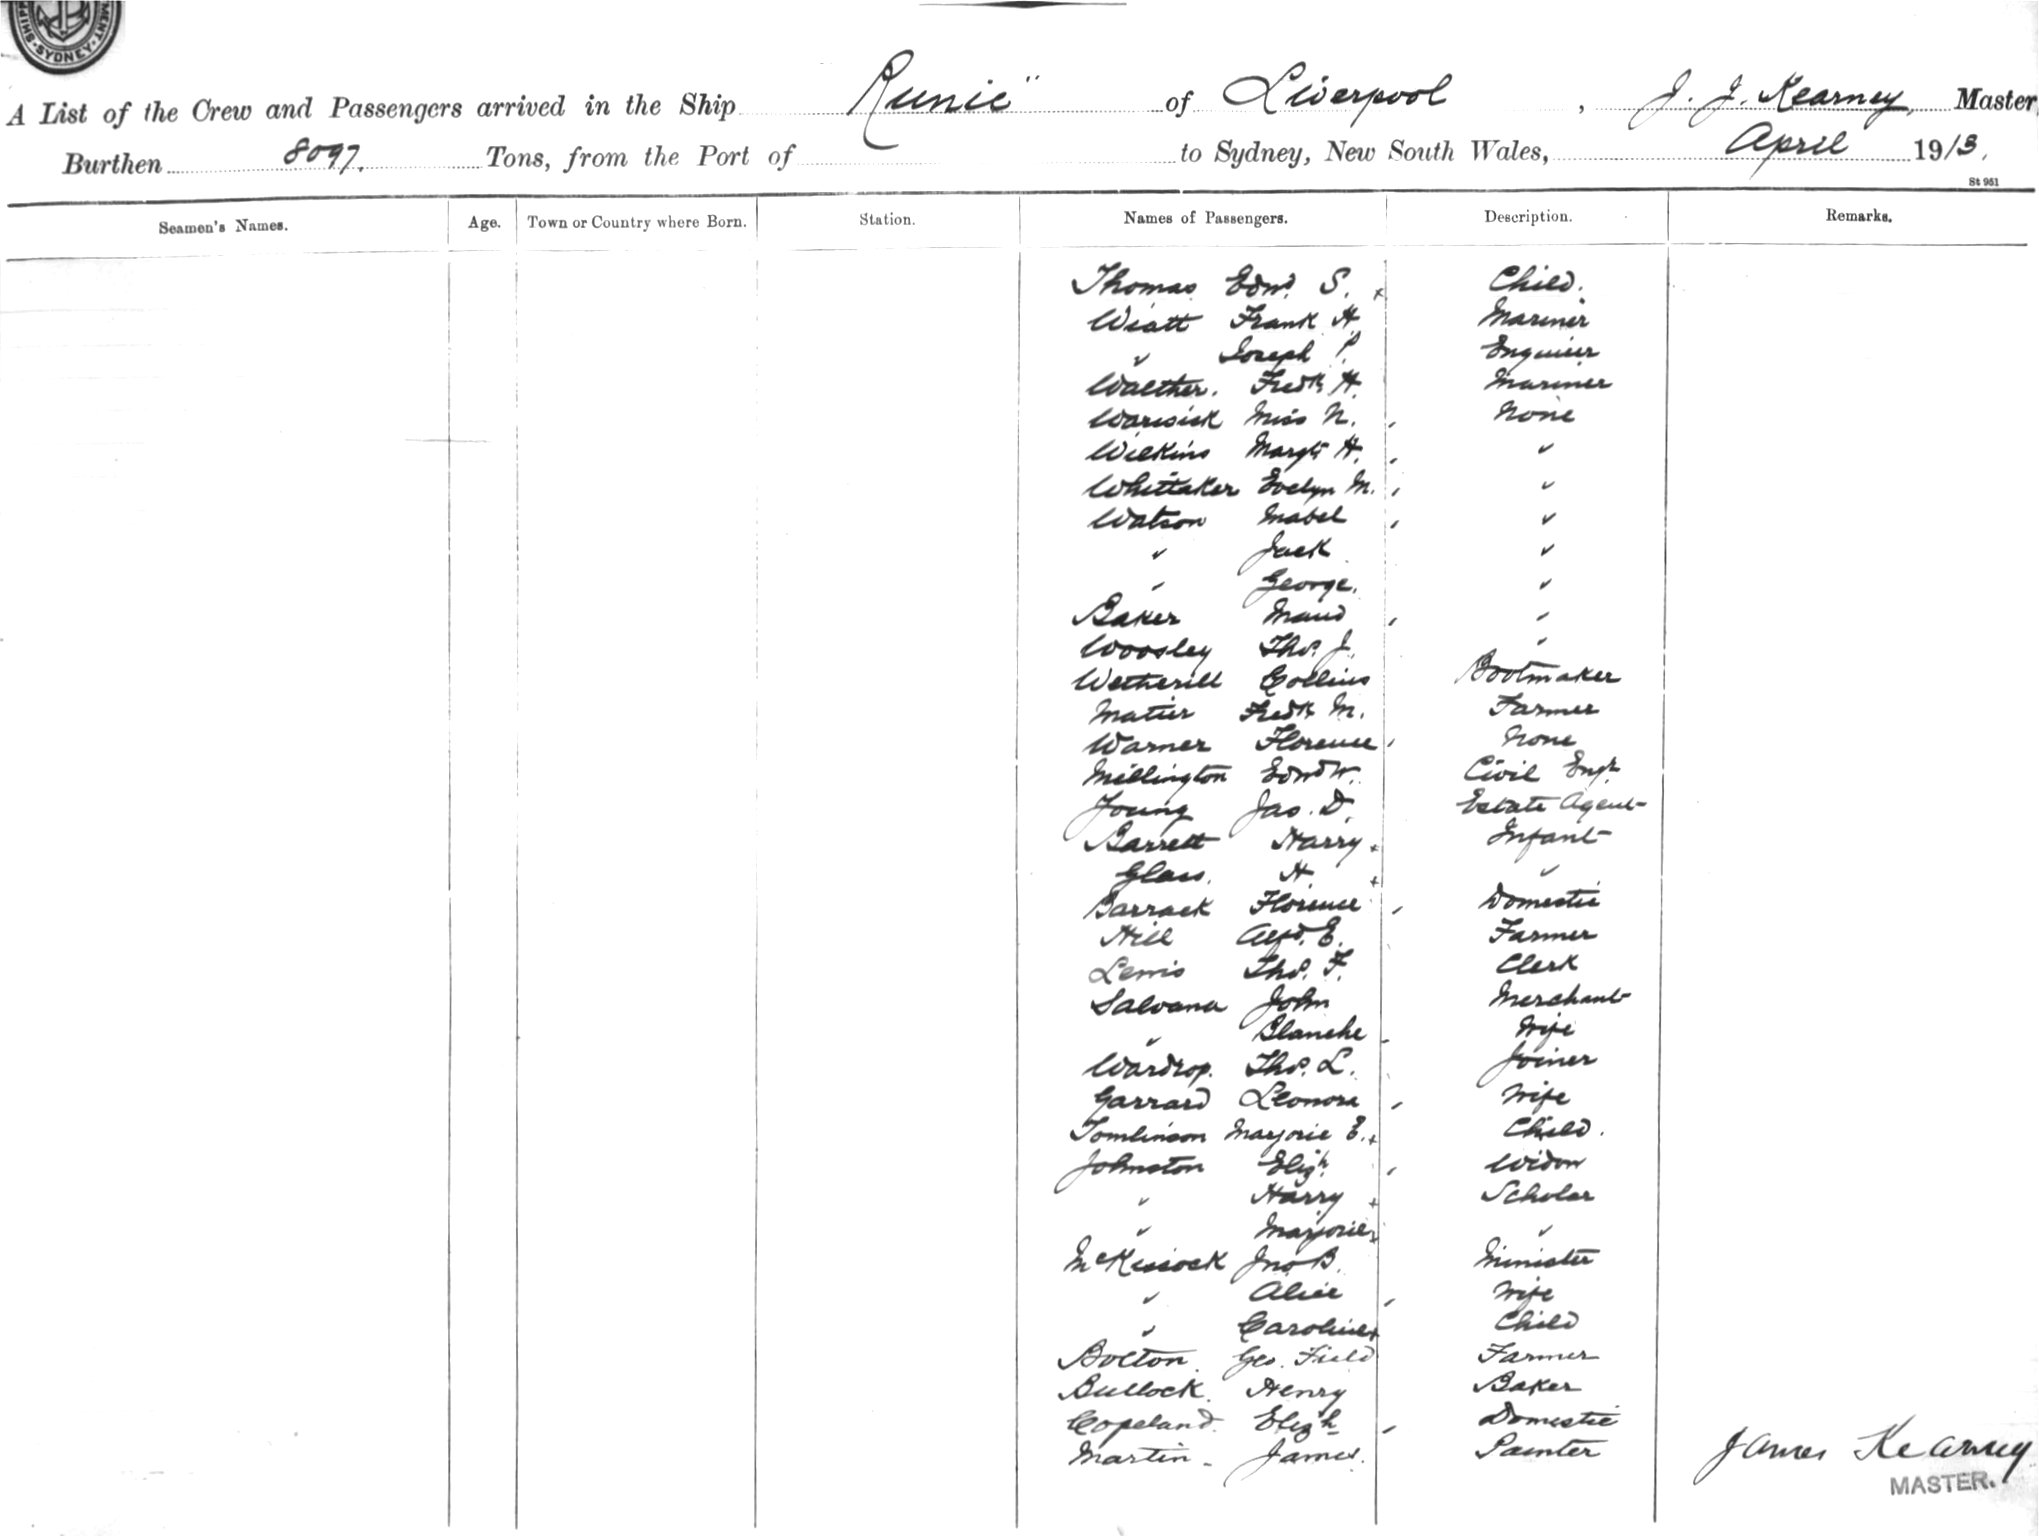 SHIPP MENT · SYDNEY ·
A List of the Crew and Passengers arrived in the Ship Runic" of Liverpool, J. J. Kearney, Master
Burthen 8097. Tons, from the Port of to Sydney, New South Wales, April 1913.
St 951
Seamen's Names. Age. Town or Country where Born. Station. Names of Passengers. Description. Remarks.
Thomas Edwd S. x Child.
Wiatt Frank H. Mariner
" Joseph P. Engineer
Walther. Fredk H. Mariner
Warwick Miss N. , None
Wilkins Margt H. , "
Whittaker Evelyn M. , "
Watson Mabel , "
" Jack "
" George. "
Baker Maud , "
Woosley Thos. J. "
Wetherill Collins Bootmaker
Matier Fredk M. Farmer
Warner Florence , None
Millington Edwd W. Civil Engr.
Young Jas. D. Estate Agent
Barrett Harry + Infant
Glass. H. + "
Barrack Florence , Domestic
Hill Alfd. E. Farmer
Lewis Thos. F. Clerk
Salvana John Merchant
" Blanche , Wife
Wardrop. Thos. L. Joiner
Garrard Leonora , Wife
Tomlinson Marjorie E. + Child.
Johnston Elizh , Widow
" Harry + Scholar
" Marjorie x "
McKissock Jno B. Minister
" Alice , Wife
" Caroline + Child
Bolton Geo. Field Farmer
Bullock Henry Baker
Copeland Elizh , Domestic
Martin James. Painter
James Kearney
MASTER.